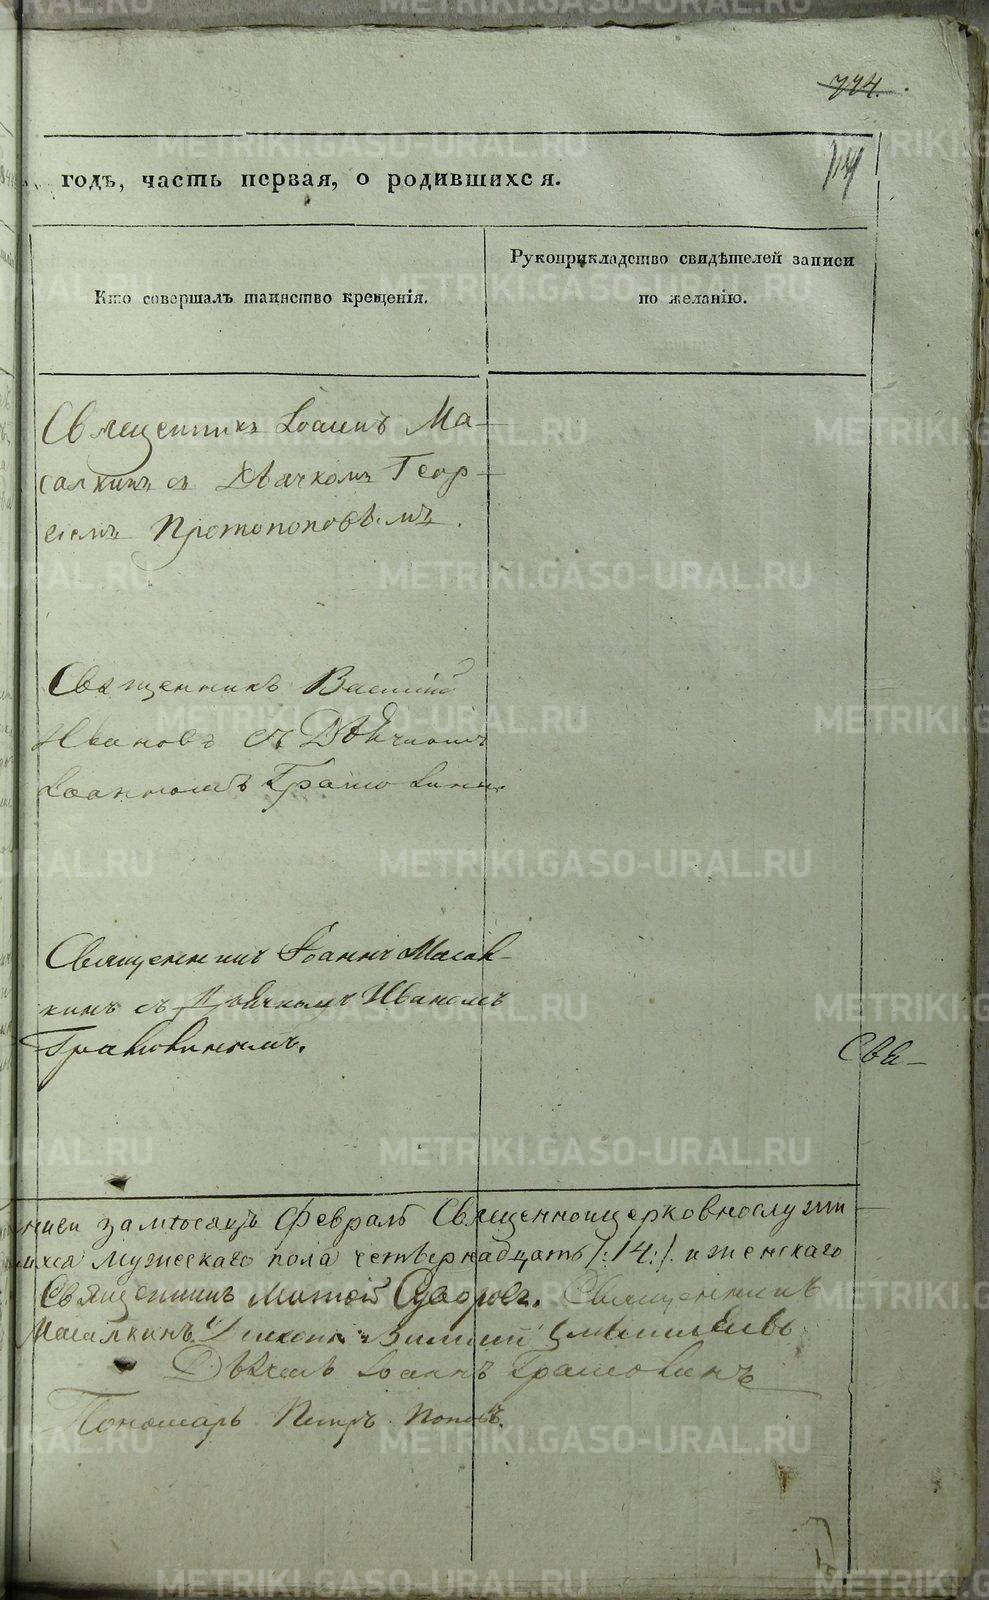 774.
114
годъ, часть первая, о родившихся.
Кто совершалъ таинство крещенія.
Рукоприкладство свидѣтелей записи
по желанію.
Священникъ Іоаннъ Ма-
салкинъ съ Дьячкомъ Геор-
гіемъ Протопоповымъ.
Священникъ Василій
Ивановъ съ Дьячкомъ
Іоанномъ
Священникъ Іоаннъ Масал-
кинъ съ Дьячкомъ Иваномъ
Свя-
за мѣсяцъ Февраль Священноицерковнослужи-
мужескаго пола четырнадцать /:14:/ и женскаго
Священникъ Суворовъ. Священникъ
Масалкинъ
Іоаннъ
Пономарь Петръ Поповъ.
METRIKI.GASO-URAL.RU